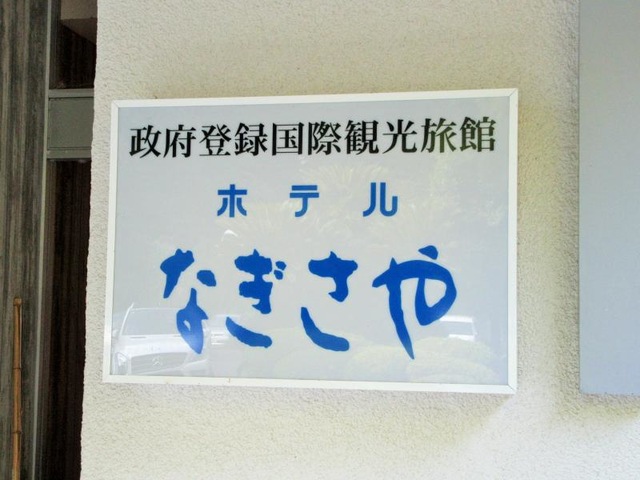 政府登録国際観光旅館
ホテル
なぎさや